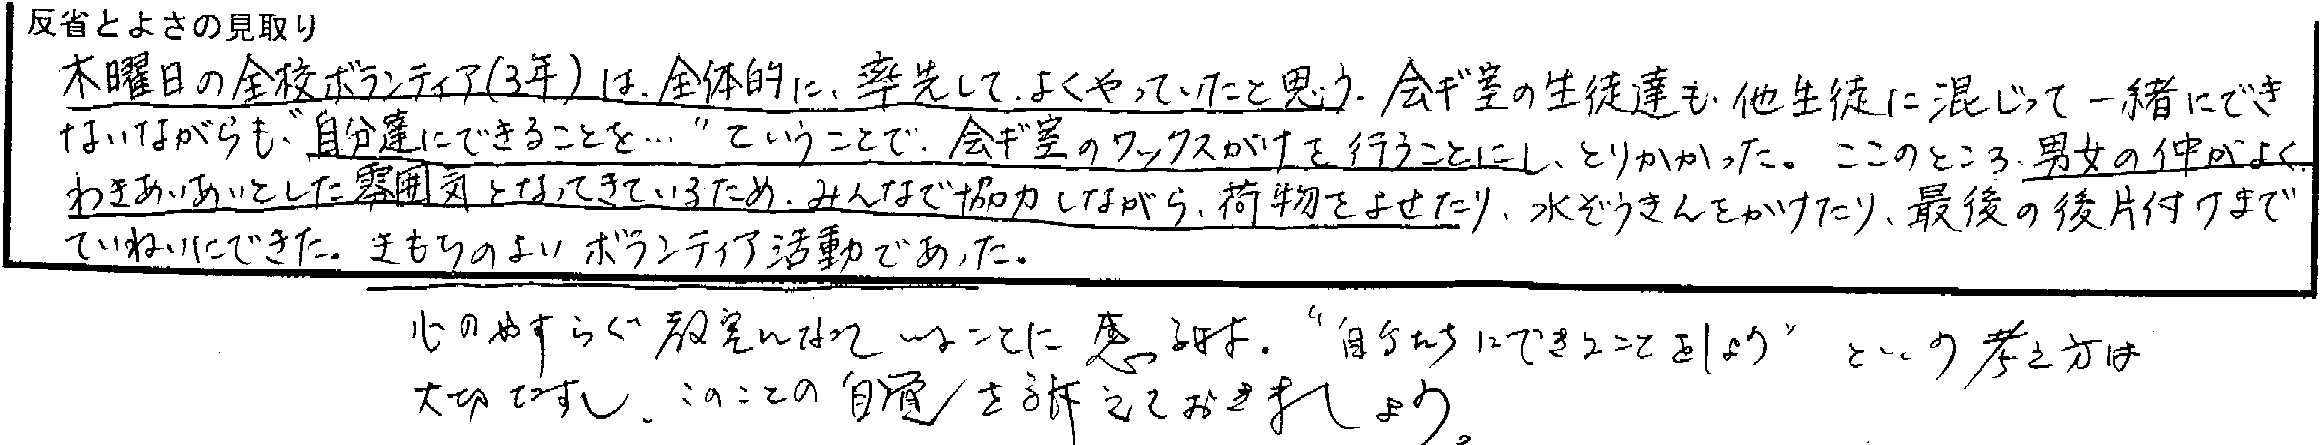 反省とよさの見取り
木曜日の全校ボランティア(3年)は、全体的に、率先して、よくやっていたと思う。会ギ室の生徒達も、他生徒に混じって一緒にでき
ないながらも、"自分達にできることを…"ていうことで、会ギ室のワックスがけを行うことにし、とりかかった。ここのところ、男女の仲がよく、
わきあいあいとした雰囲気となってきているため、みんなで協力しながら、荷物をよせたり、水ぞうきんをがけたり、最後の後片付けまで
ていねいにできた。きもちのよいボランティア活動であった。
心のやすらぐ教室になっていることに感謝。"自分たちにできることをしよう"という考え方は
大切ですし、このことの自覚を訴えておきましょう。